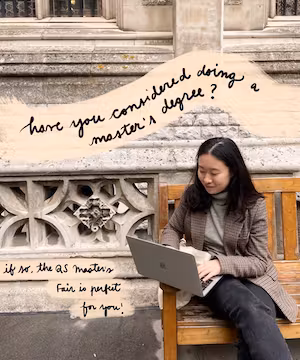 have you considered doing a
master's degree?
if so, the QS master's
Fair is perfect
for you!